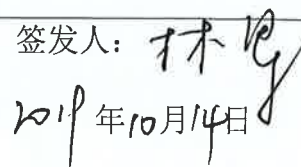 签发人：林
2019年10月14日